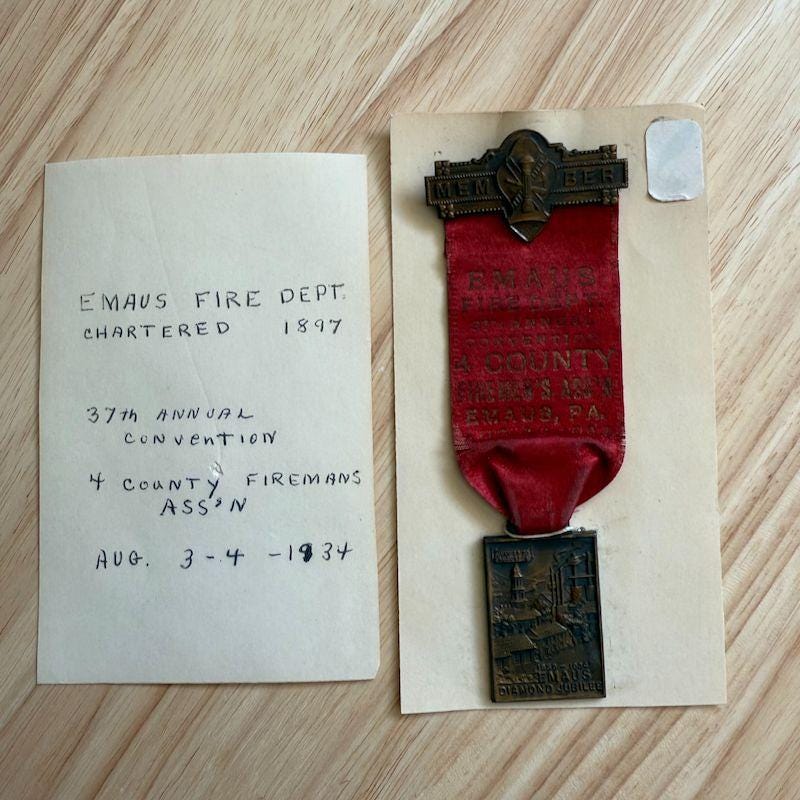 EMAUS FIRE DEPT.
CHARTERED 1897
37th ANNUAL
CONVENTION
4 COUNTY FIREMANS
ASS'N
AUG. 3-4-1934
MEMBER
EMAUS
FIRE DEPT.
37TH ANNUAL
CONVENTION
4 COUNTY
FIREMEN'S ASS'N
EMAUS, PA.
1859-1934
EMAUS
DIAMOND JUBILEE